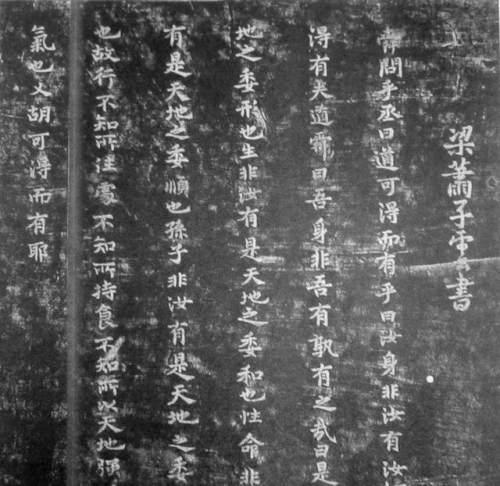 梁蕭子雲書
舜問乎丞曰道可得而有乎曰汝身非汝有汝
得有夫道舜曰吾身非吾有孰有之哉曰是
地之委形也生非汝有是天地之委和也性命非
有是天地之委順也孫子非汝有是天地之委
也故行不知所往處不知所持食不知所以天地强
氣也又胡可得而有耶